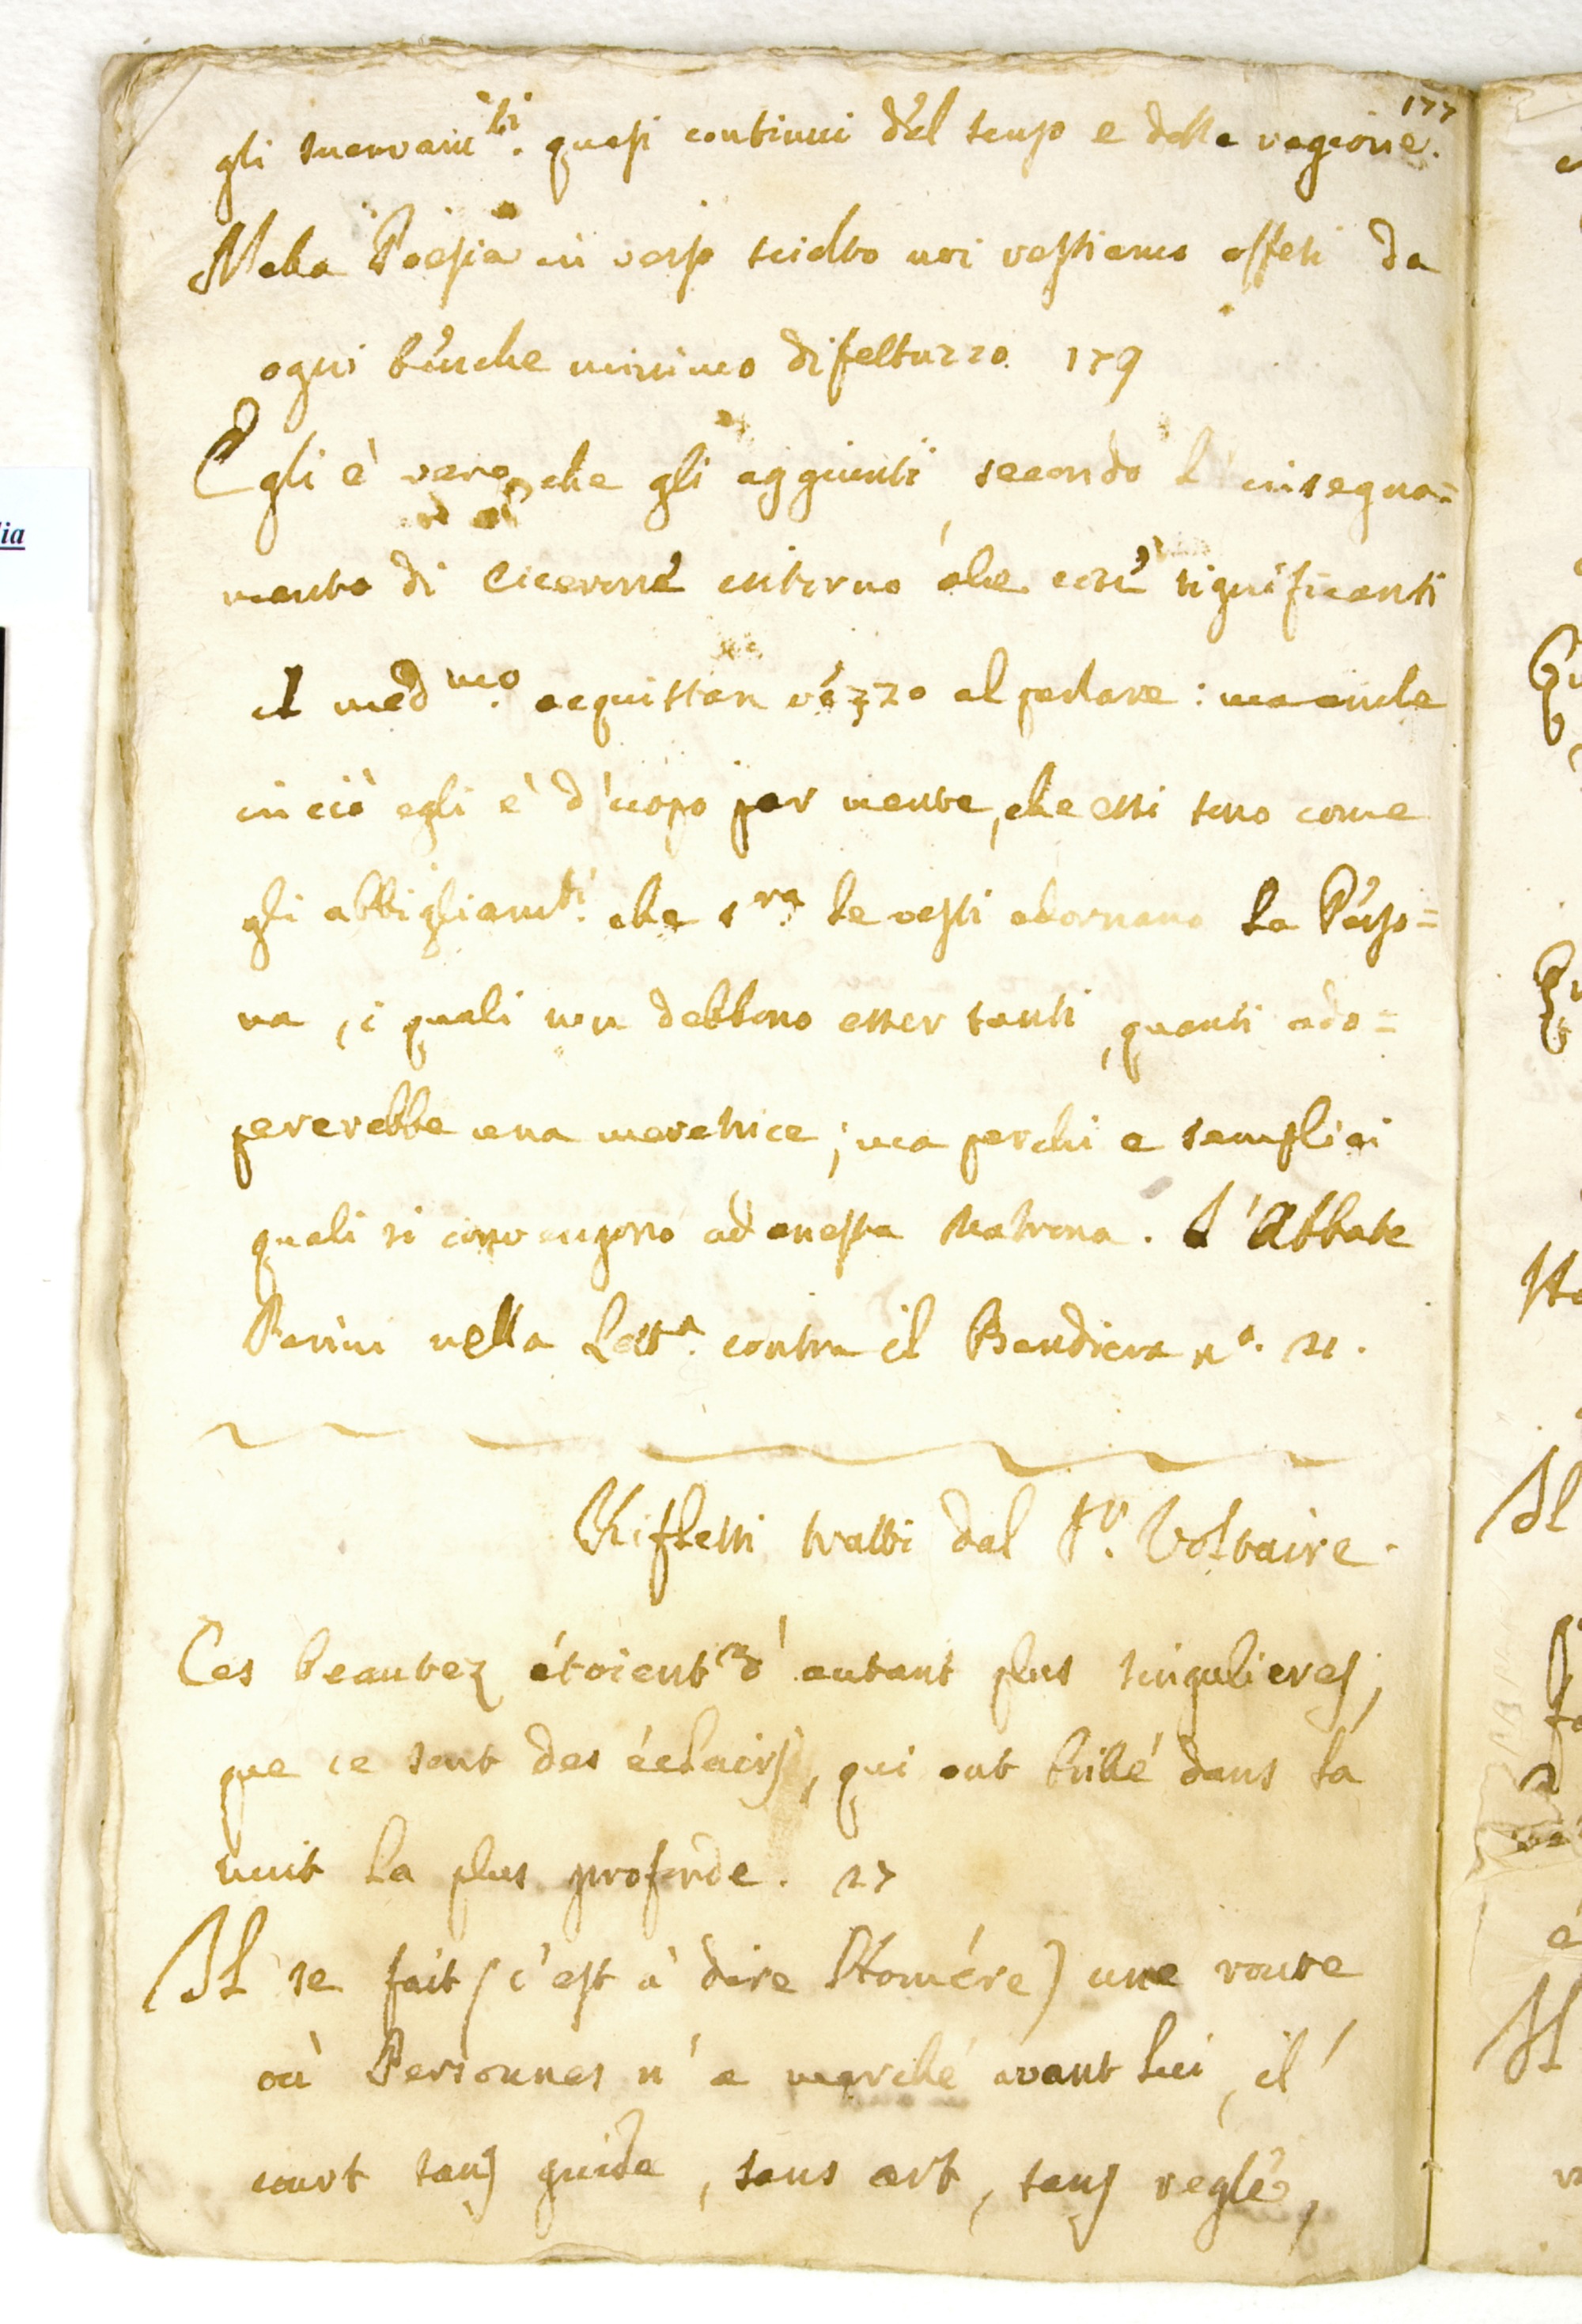 177
gli snervamti. quasi continui del senso e della ragione.
Nella Poesia in verso sciolto noi restiamo offesi da
ogni benche minimo difettuzzo 179
Egli è vero, che gli aggiunti, secondo l'insegna=
mento di Cicerone intorno alle cose significanti
il medmo. acquistan vezzo al parlare: ma anche
in ciò egli è d'uopo por mente, che essi sono come
gli abbigliamti. che sra. le vesti adornano la Perso=
na, i quali non debbono esser tanti, quanti ado=
pererebbe una meretrice; ma parchi e semplici
quali si convengono ad onesta Matrona. L'Abbate
Parini nella Letta. contra il Bandiera no. 21.
Riflessi tratti dal Sr. Voltaire.
Ces beautez étoient d'autant plus singulieres,
que ce sont des éclairs, qui ont brillé dans la
nuit la plus profonde. 27
Il se fait (c'est à dire Homére) une route
où Personnes n'a marché avant lui, il
court sans guide, sans art, sans reglé,
ia